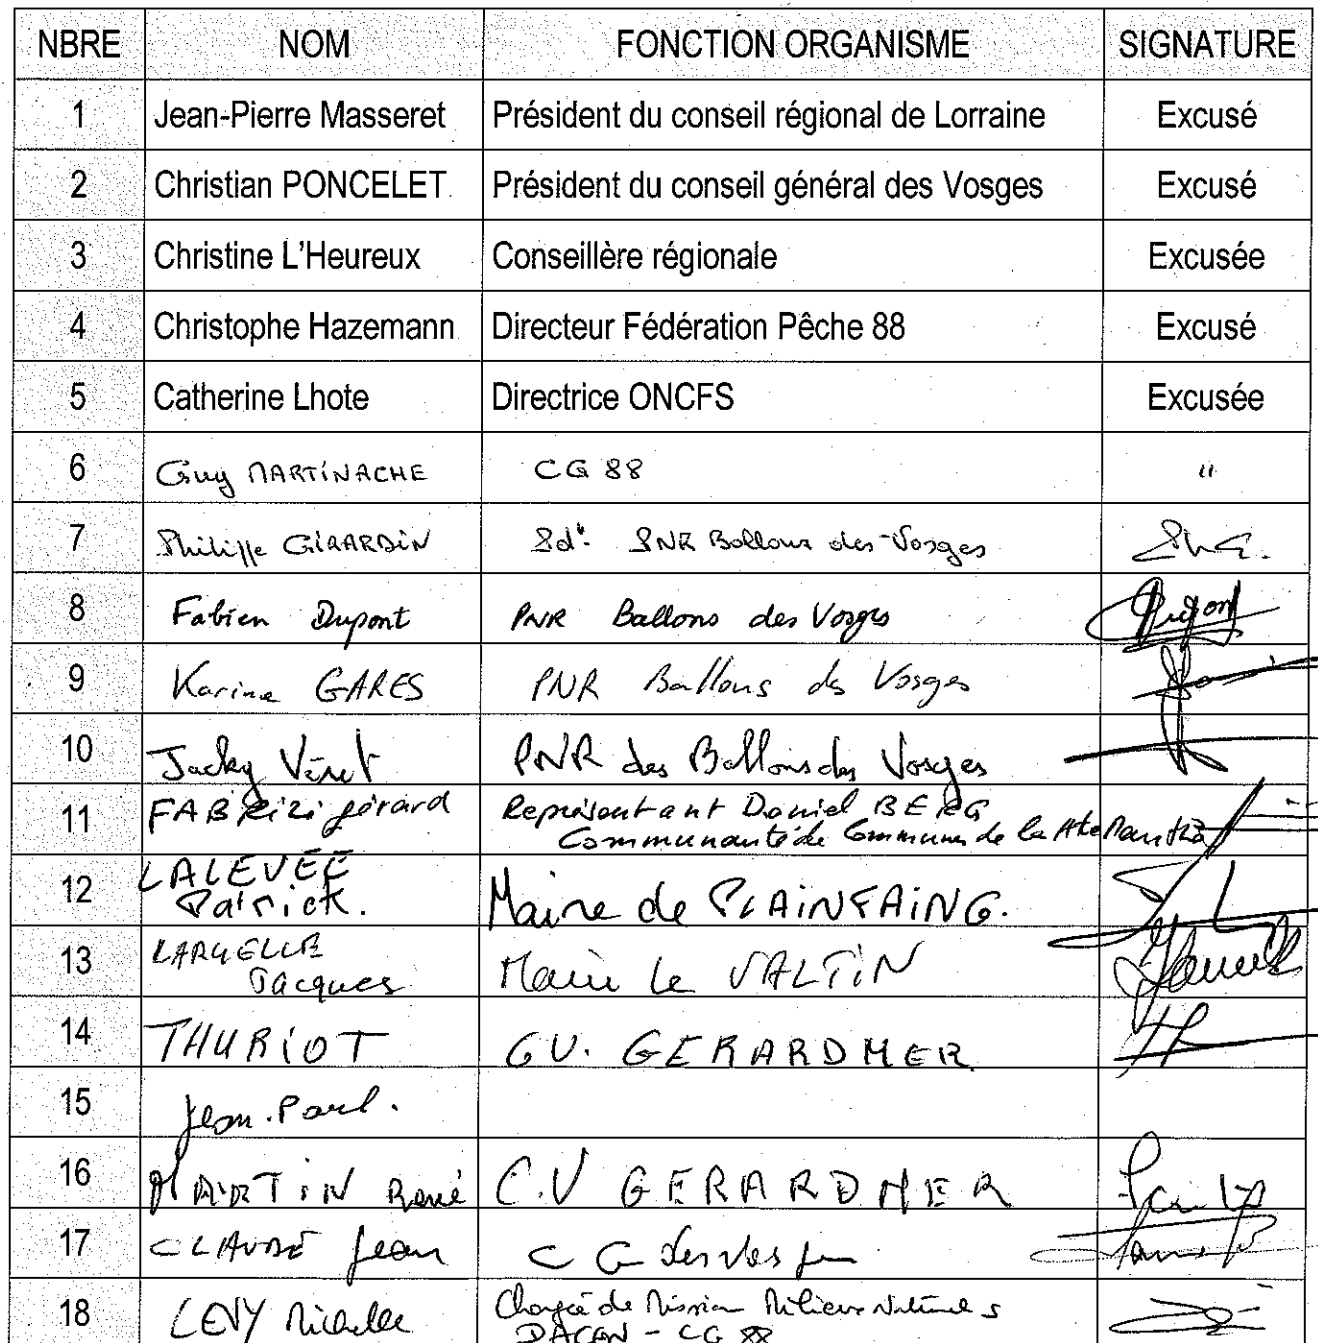 NBRE NOM FONCTION ORGANISME SIGNATURE
1 Jean-Pierre Masseret Président du conseil régional de Lorraine Excusé
2 Christian PONCELET Président du conseil général des Vosges Excusé
3 Christine L'Heureux Conseillère régionale Excusée
4 Christophe Hazemann Directeur Fédération Pêche 88 Excusé
5 Catherine Lhote Directrice ONCFS Excusée
6 Guy MARTINACHE CG 88 "
7 Philippe GIRARDIN Pdt. PNR Ballons des Vosges
8 Fabien Dupont PNR Ballons des Vosges
9 Karine GARES PNR Ballons des Vosges
10 Jacky PNR des Ballons des Vosges
11 FABRIZI gérard Représentant Daniel BERG
Communauté de Communes de la Hte
12 LALEVÉE
Patrick. Maire de PLAINFAING.
13 LARUELLE
Jacques Maire Le VALTIN
14 THURIOT GERARDMER
15 Jean-Paul.
16 MARTIN René C.V GERARDMER
17 CLAUDE Jean CG des Vosges
18 LEVY Chargée de Mission Milieux Naturels
CG 88